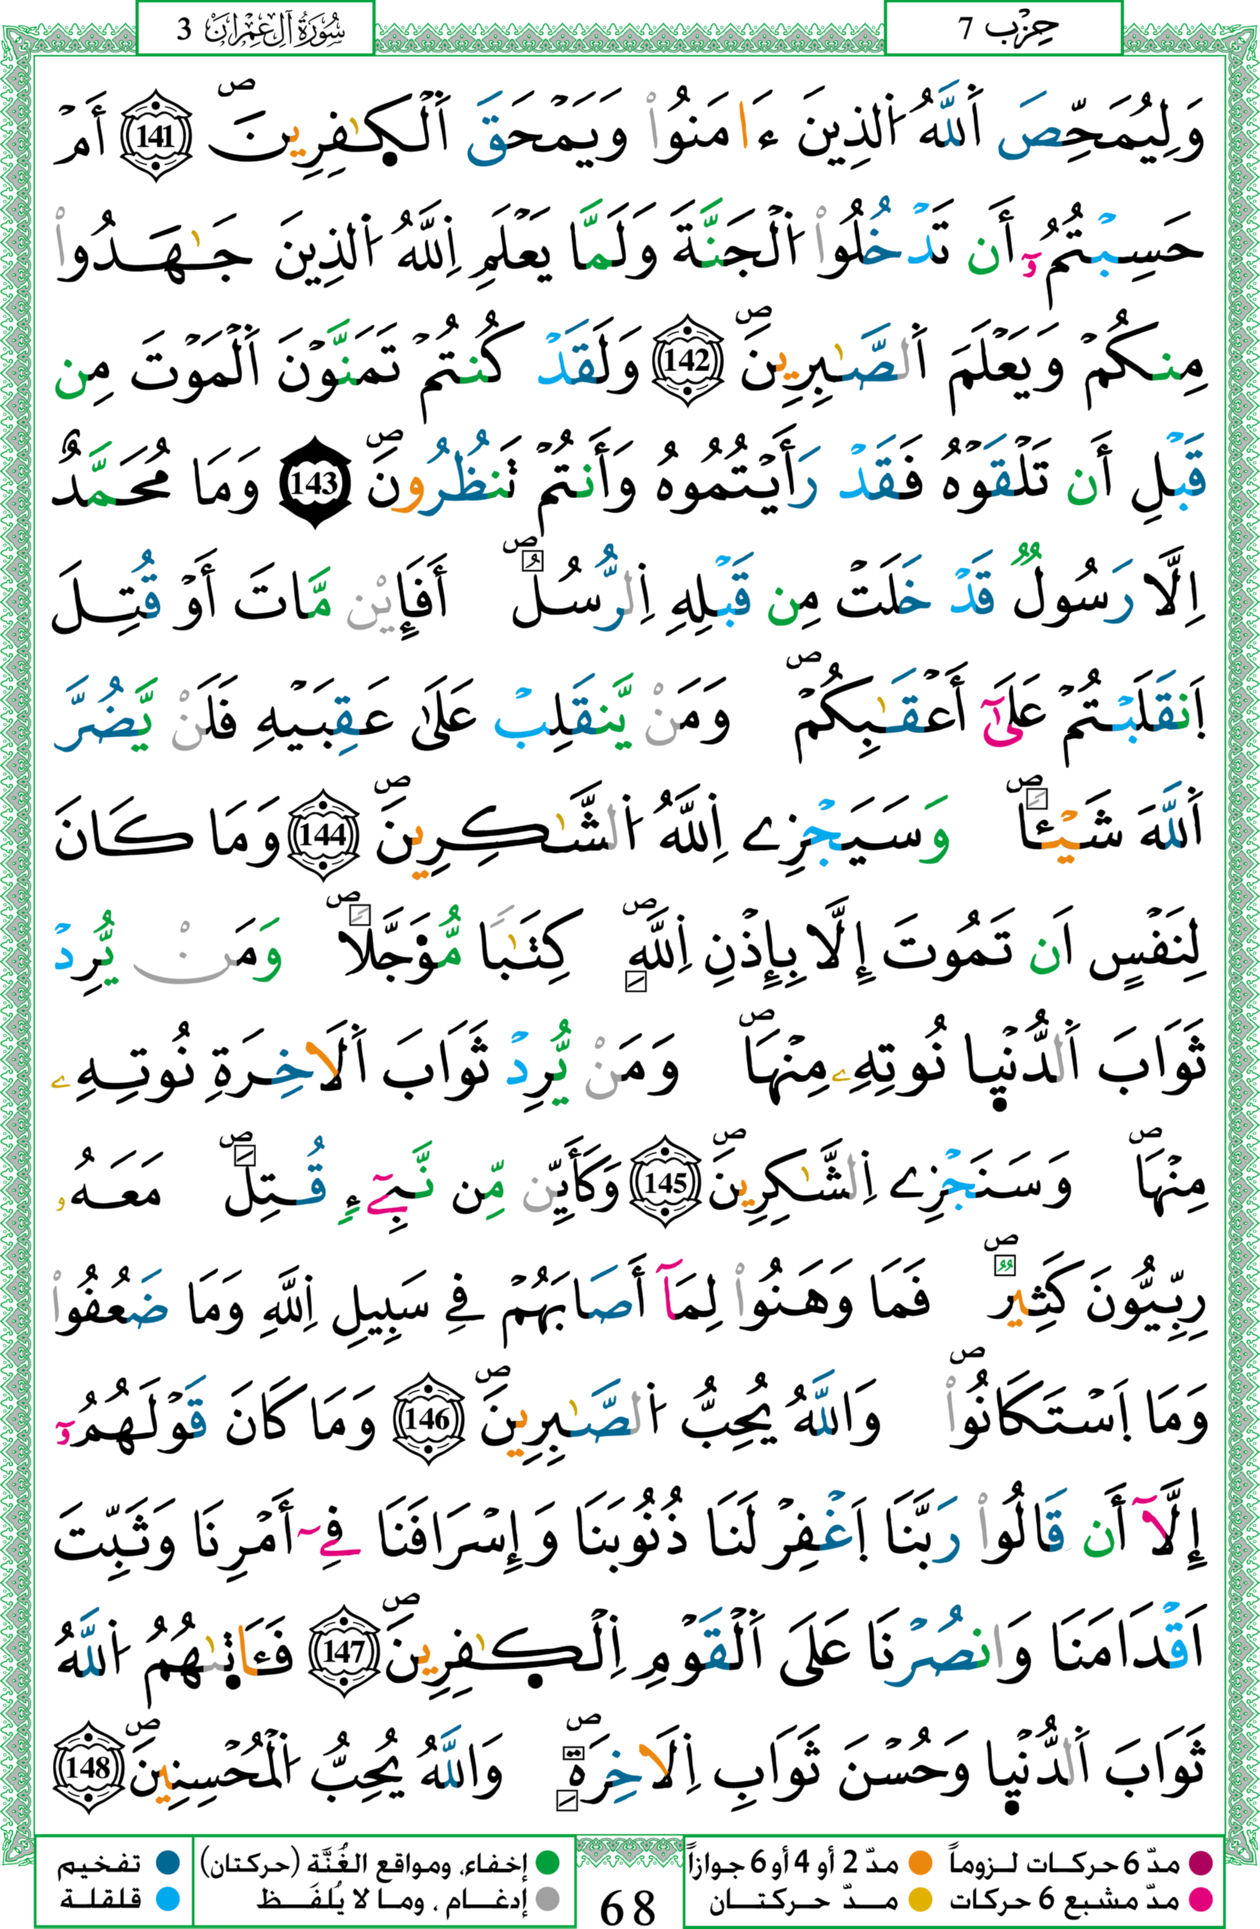 سُورَةُ آلِ عِمْرَانَ 3
حِزْب 7
وَلِيُمَحِّصَ اَ۬للَّهُ اُ۬لذِينَ ءَامَنُواْ وَيَمْحَقَ اَ۬لْكٰ۪فِرِينَۖ 141 أَمْ
حَسِبْتُمُۥٓ أَن تَدْخُلُواْ اُ۬لْجَنَّةَ وَلَمَّا يَعْلَمِ اِ۬للَّهُ اُ۬لذِينَ جَٰهَدُواْ
مِنكُمْ وَيَعْلَمَ اَ۬لصَّٰبِرِينَۖ 142 وَلَقَدْ كُنتُمْ تَمَنَّوْنَ اَ۬لْمَوْتَ مِن
قَبْلِ أَن تَلْقَوْهُ فَقَدْ رَأَيْتُمُوهُ وَأَنتُمْ تَنظُرُونَۖ 143 وَمَا مُحَمَّدٌ
اِلَّا رَسُولٌ قَدْ خَلَتْ مِن قَبْلِهِ اِ۬لرُّسُلُۖ أَفَإِيْن مَّاتَ أَوْ قُتِلَ
اَ۪نقَلَبْتُمْ عَلَىٰٓ أَعْقَٰبِكُمْۖ وَمَنْ يَّنقَلِبْ عَلَىٰ عَقِبَيْهِ فَلَنْ يَّضُرَّ
اَ۬للَّهَ شَيْـٔاًۖ وَسَيَجْزِے اِ۬للَّهُ اُ۬لشَّٰكِرِينَۖ 144 وَمَا كَانَ
لِنَفْسٍ اَن تَمُوتَ إِلَّا بِإِذْنِ اِ۬للَّهِۖ كِتَٰباً مُّؤَجَّلاًۖ وَمَنْ يُّرِدْ
ثَوَابَ اَ۬لدُّنْي۪ا نُوتِهِۦ مِنْهَاۖ وَمَنْ يُّرِدْ ثَوَابَ اَ۬لَاخِرَةِ نُوتِهِۦ
مِنْهَاۖ وَسَنَجْزِے اِ۬لشَّٰكِرِينَۖ 145 وَكَأَيِّن مِّن نَّبِےٓءٍ قُتِلَۖ مَعَهُۥ
رِبِّيُّونَ كَثِيرٌۖ فَمَا وَهَنُواْ لِمَآ أَصَابَهُمْ فِے سَبِيلِ اِ۬للَّهِ وَمَا ضَعُفُواْ
وَمَا اَ۪سْتَكَانُواْۖ وَاللَّهُ يُحِبُّ اُ۬لصَّٰبِرِينَۖ 146 وَمَا كَانَ قَوْلَهُمُۥٓ
إِلَّآ أَن قَالُواْ رَبَّنَا اَ۪غْفِرْ لَنَا ذُنُوبَنَا وَإِسْرَافَنَا فِےٓ أَمْرِنَا وَثَبِّتَ
اَقْدَامَنَا وَانصُرْنَا عَلَى اَ۬لْقَوْمِ اِ۬لْكٰ۪فِرِينَۖ 147 فَـَٔات۪ىٰهُمُ اُ۬للَّهُ
ثَوَابَ اَ۬لدُّنْي۪ا وَحُسْنَ ثَوَابِ اِ۬لَاخِرَةِۖ وَاللَّهُ يُحِبُّ اُ۬لْمُحْسِنِينَۖ 148
مدّ 6 حركات لـزوماً مدّ 2 أو 4 أو 6 جوازاً
مدّ مشبع 6 حركات مــدّ حركتــان
68
إخفاء، ومواقع الغُنَّة (حركتان) تفخيم
إدغـام ، ومـا لا يُلفَـظ قلقلة